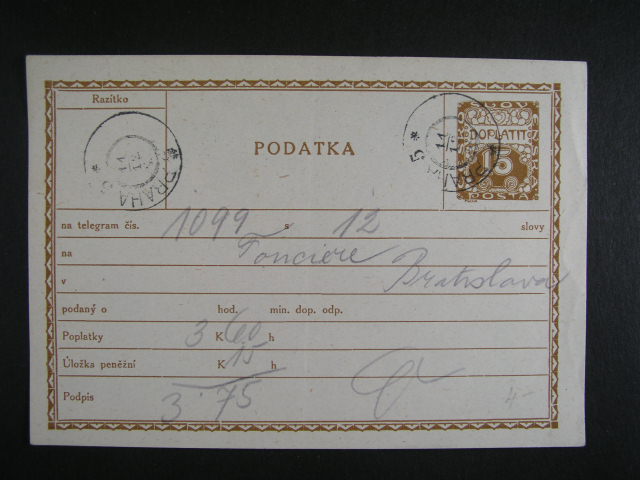 Razítko
PODATKA
DOPLATIT
15
POŠTA
* PRAHA 5 *
* PRAHA 5 *
na telegram čís. 1099 s 12 slovy
na Fonciere
v Bratislava
podaný o hod. min. dop. odp.
Poplatky 3 K 60 h
Úložka peněžní K 15 h
Podpis 3 75
4-